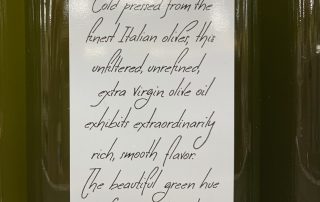 Cold pressed from the
finest Italian olives, this
unfiltered, unrefined,
extra virgin olive oil
exhibits extraordinarily
rich, smooth flavor.
The beautiful green hue